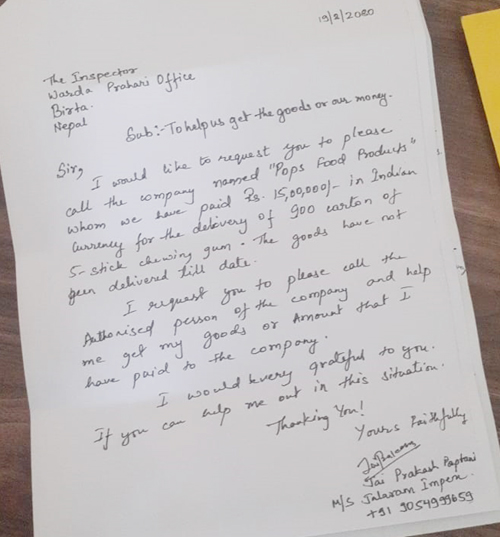 19/2/2020
The Inspector
Warda Prahari Office
Birta.
Nepal
Sub:- To help us get the goods or our money.
Sir,
I would like to request you to please
call the company named "Pops Food Products"
whom we have paid Rs. 15,00,000/- in Indian
currency for the delivery of 900 carton of
5-stick chewing gum. The goods have not
been delivered till date.
I request you to please call the
Authorised person of the company and help
me get my goods or Amount that I
have paid to the company.
I would be very grateful to you.
If you can help me out in this situation.
Thanking You!
Yours Faithfully
Jai Prakash
M/S Jalaram Impex.
+91 9054999659